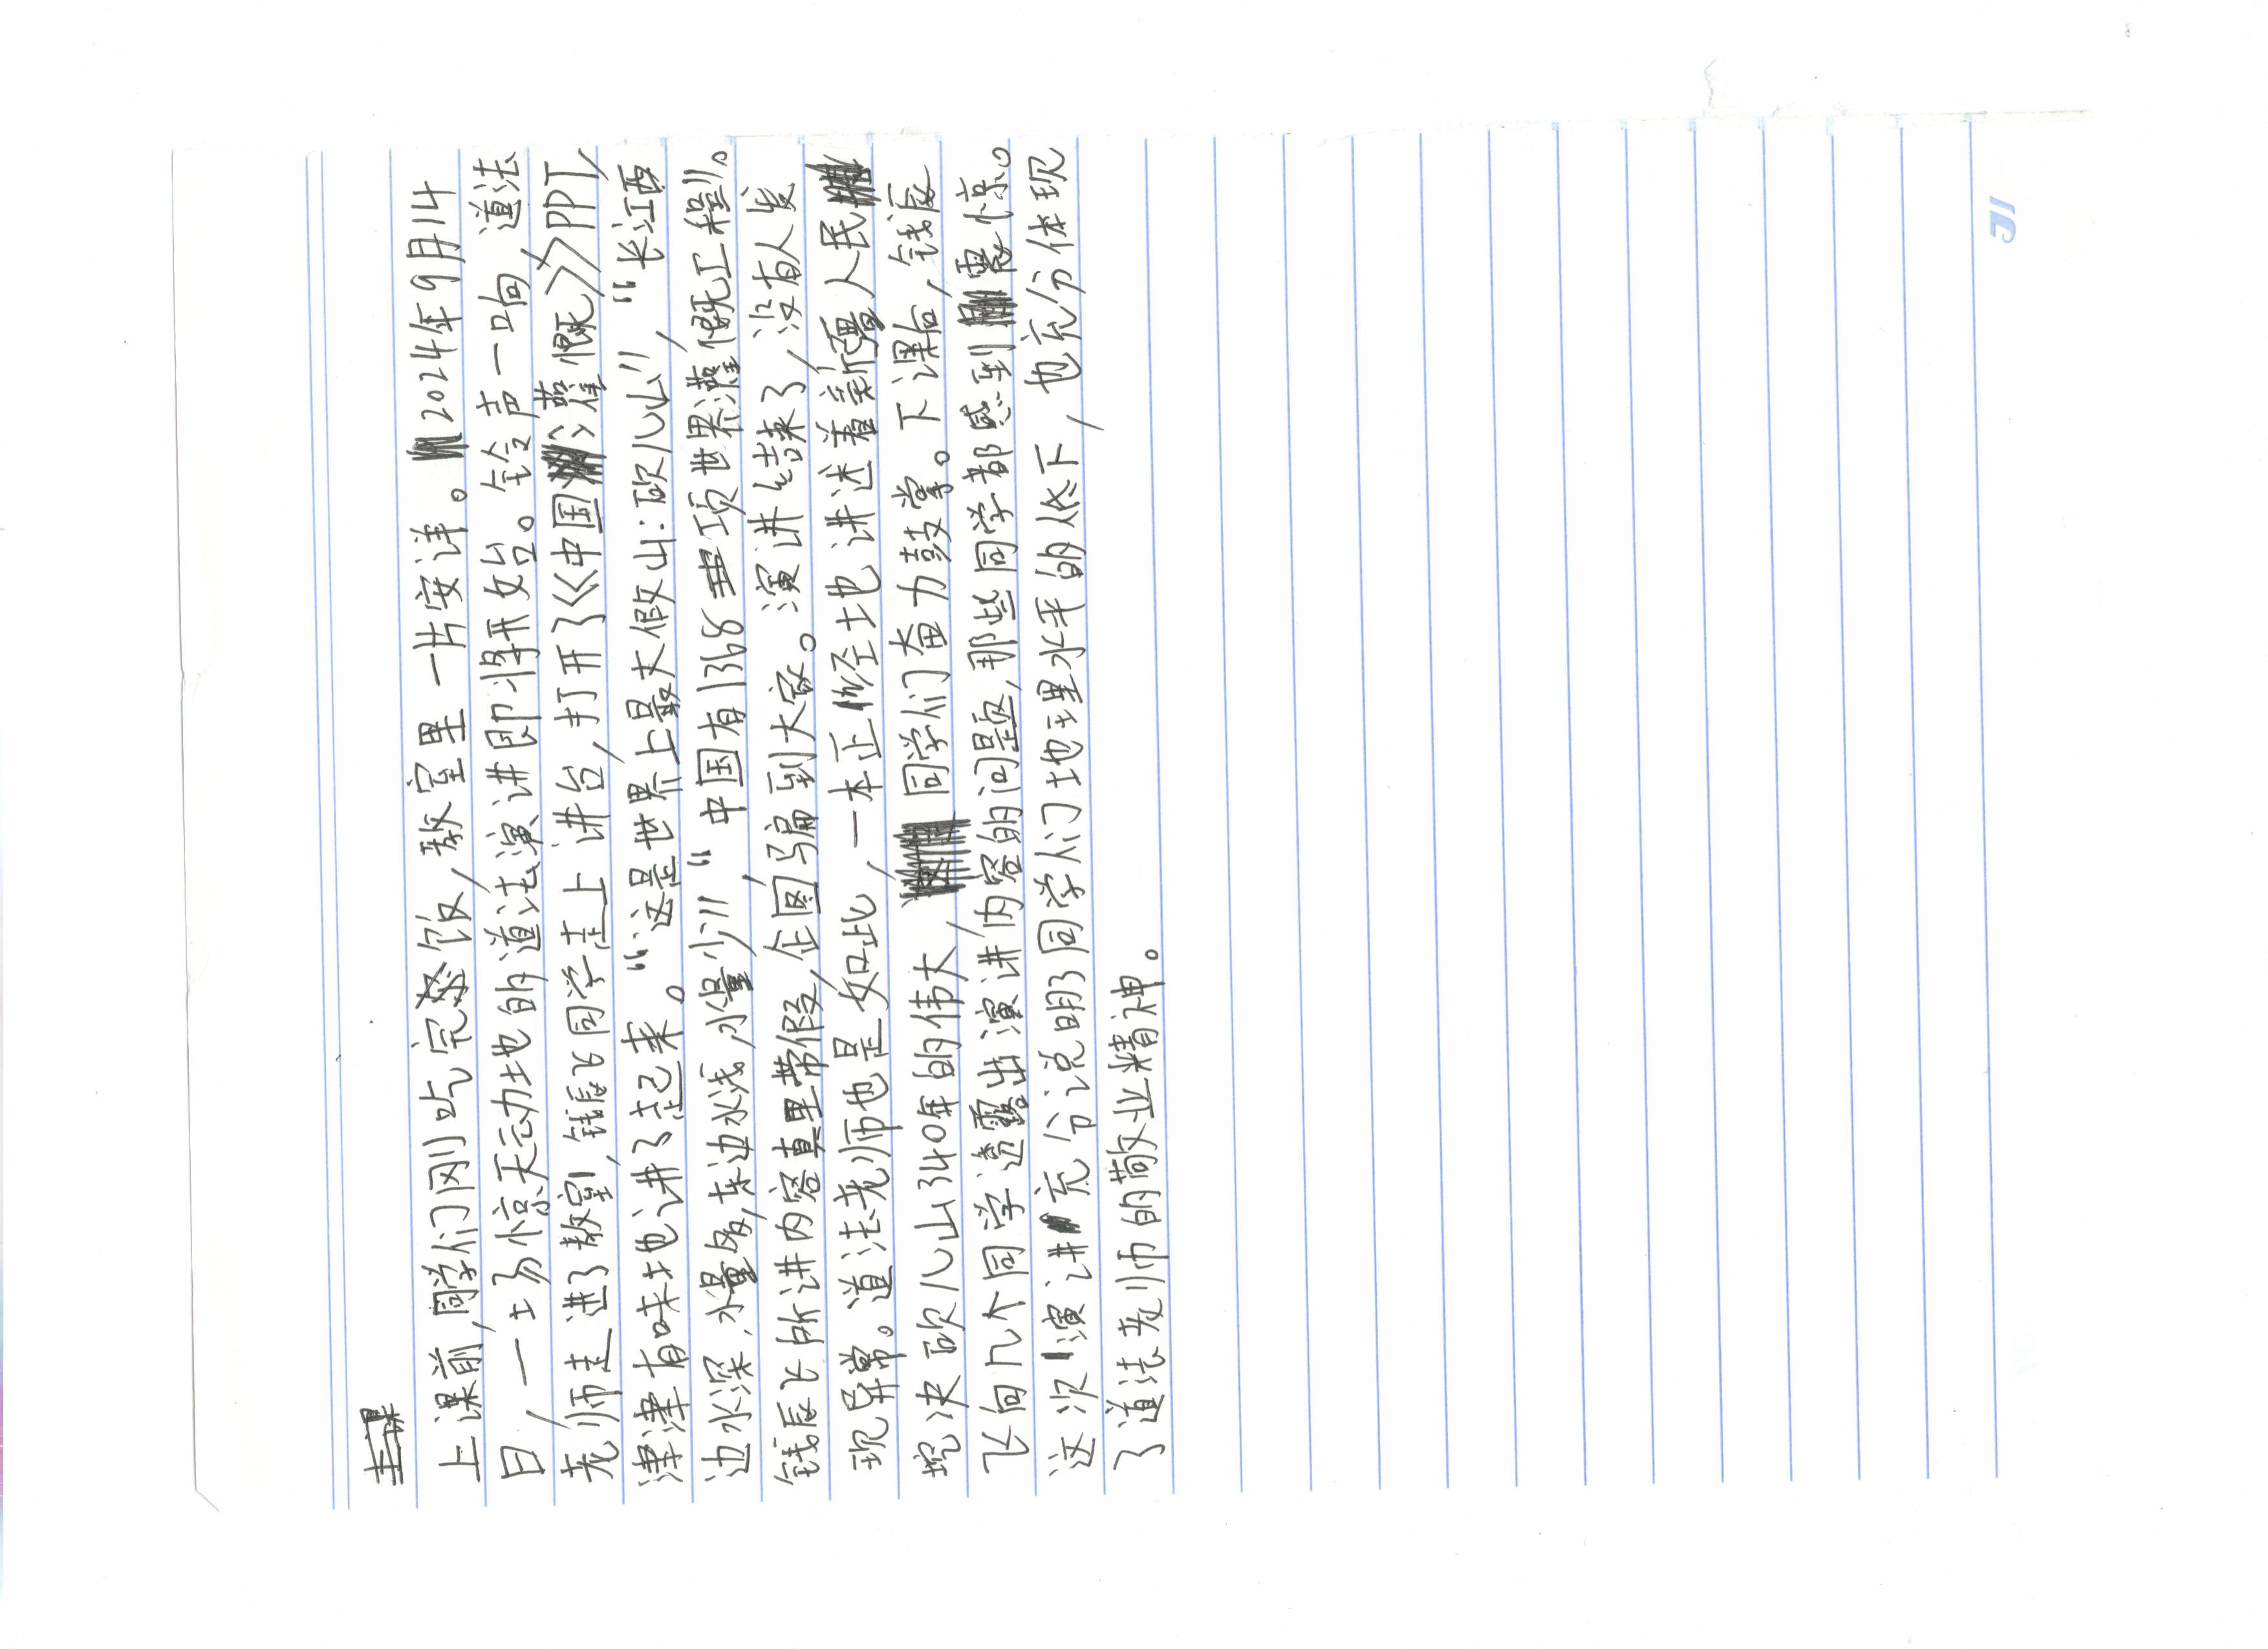 上课前，同学们刚吃完餐饭，教室里一片安详。2024年9月14
日，一场惊天动地的道法演讲即将开始。铃声一响，道法
老师走进了教室，钱辰飞同学走上讲台，打开了《中国灌慨》PPT，
津津有味地讲了起来。“这是世界上最大假山：欧几山”，“长江西
边水深，水量多，东边水浅，水量少”，“中国有1368项世界灌慨工程”。
钱辰飞所讲内容真里带假，企图骗到大家。演讲结束了，没有人发
现异常。道法老师也是如此，一本正经地讲述着新疆人民
挖决欧几山340年的伟大，同学们奋力鼓掌。下课后，钱辰
飞向几个同学透露出演讲内容的问题，那些同学都感到震惊。
这次演讲充分说明了同学们地理水平的低下，也充分体现
了道法老师的敬业精神。